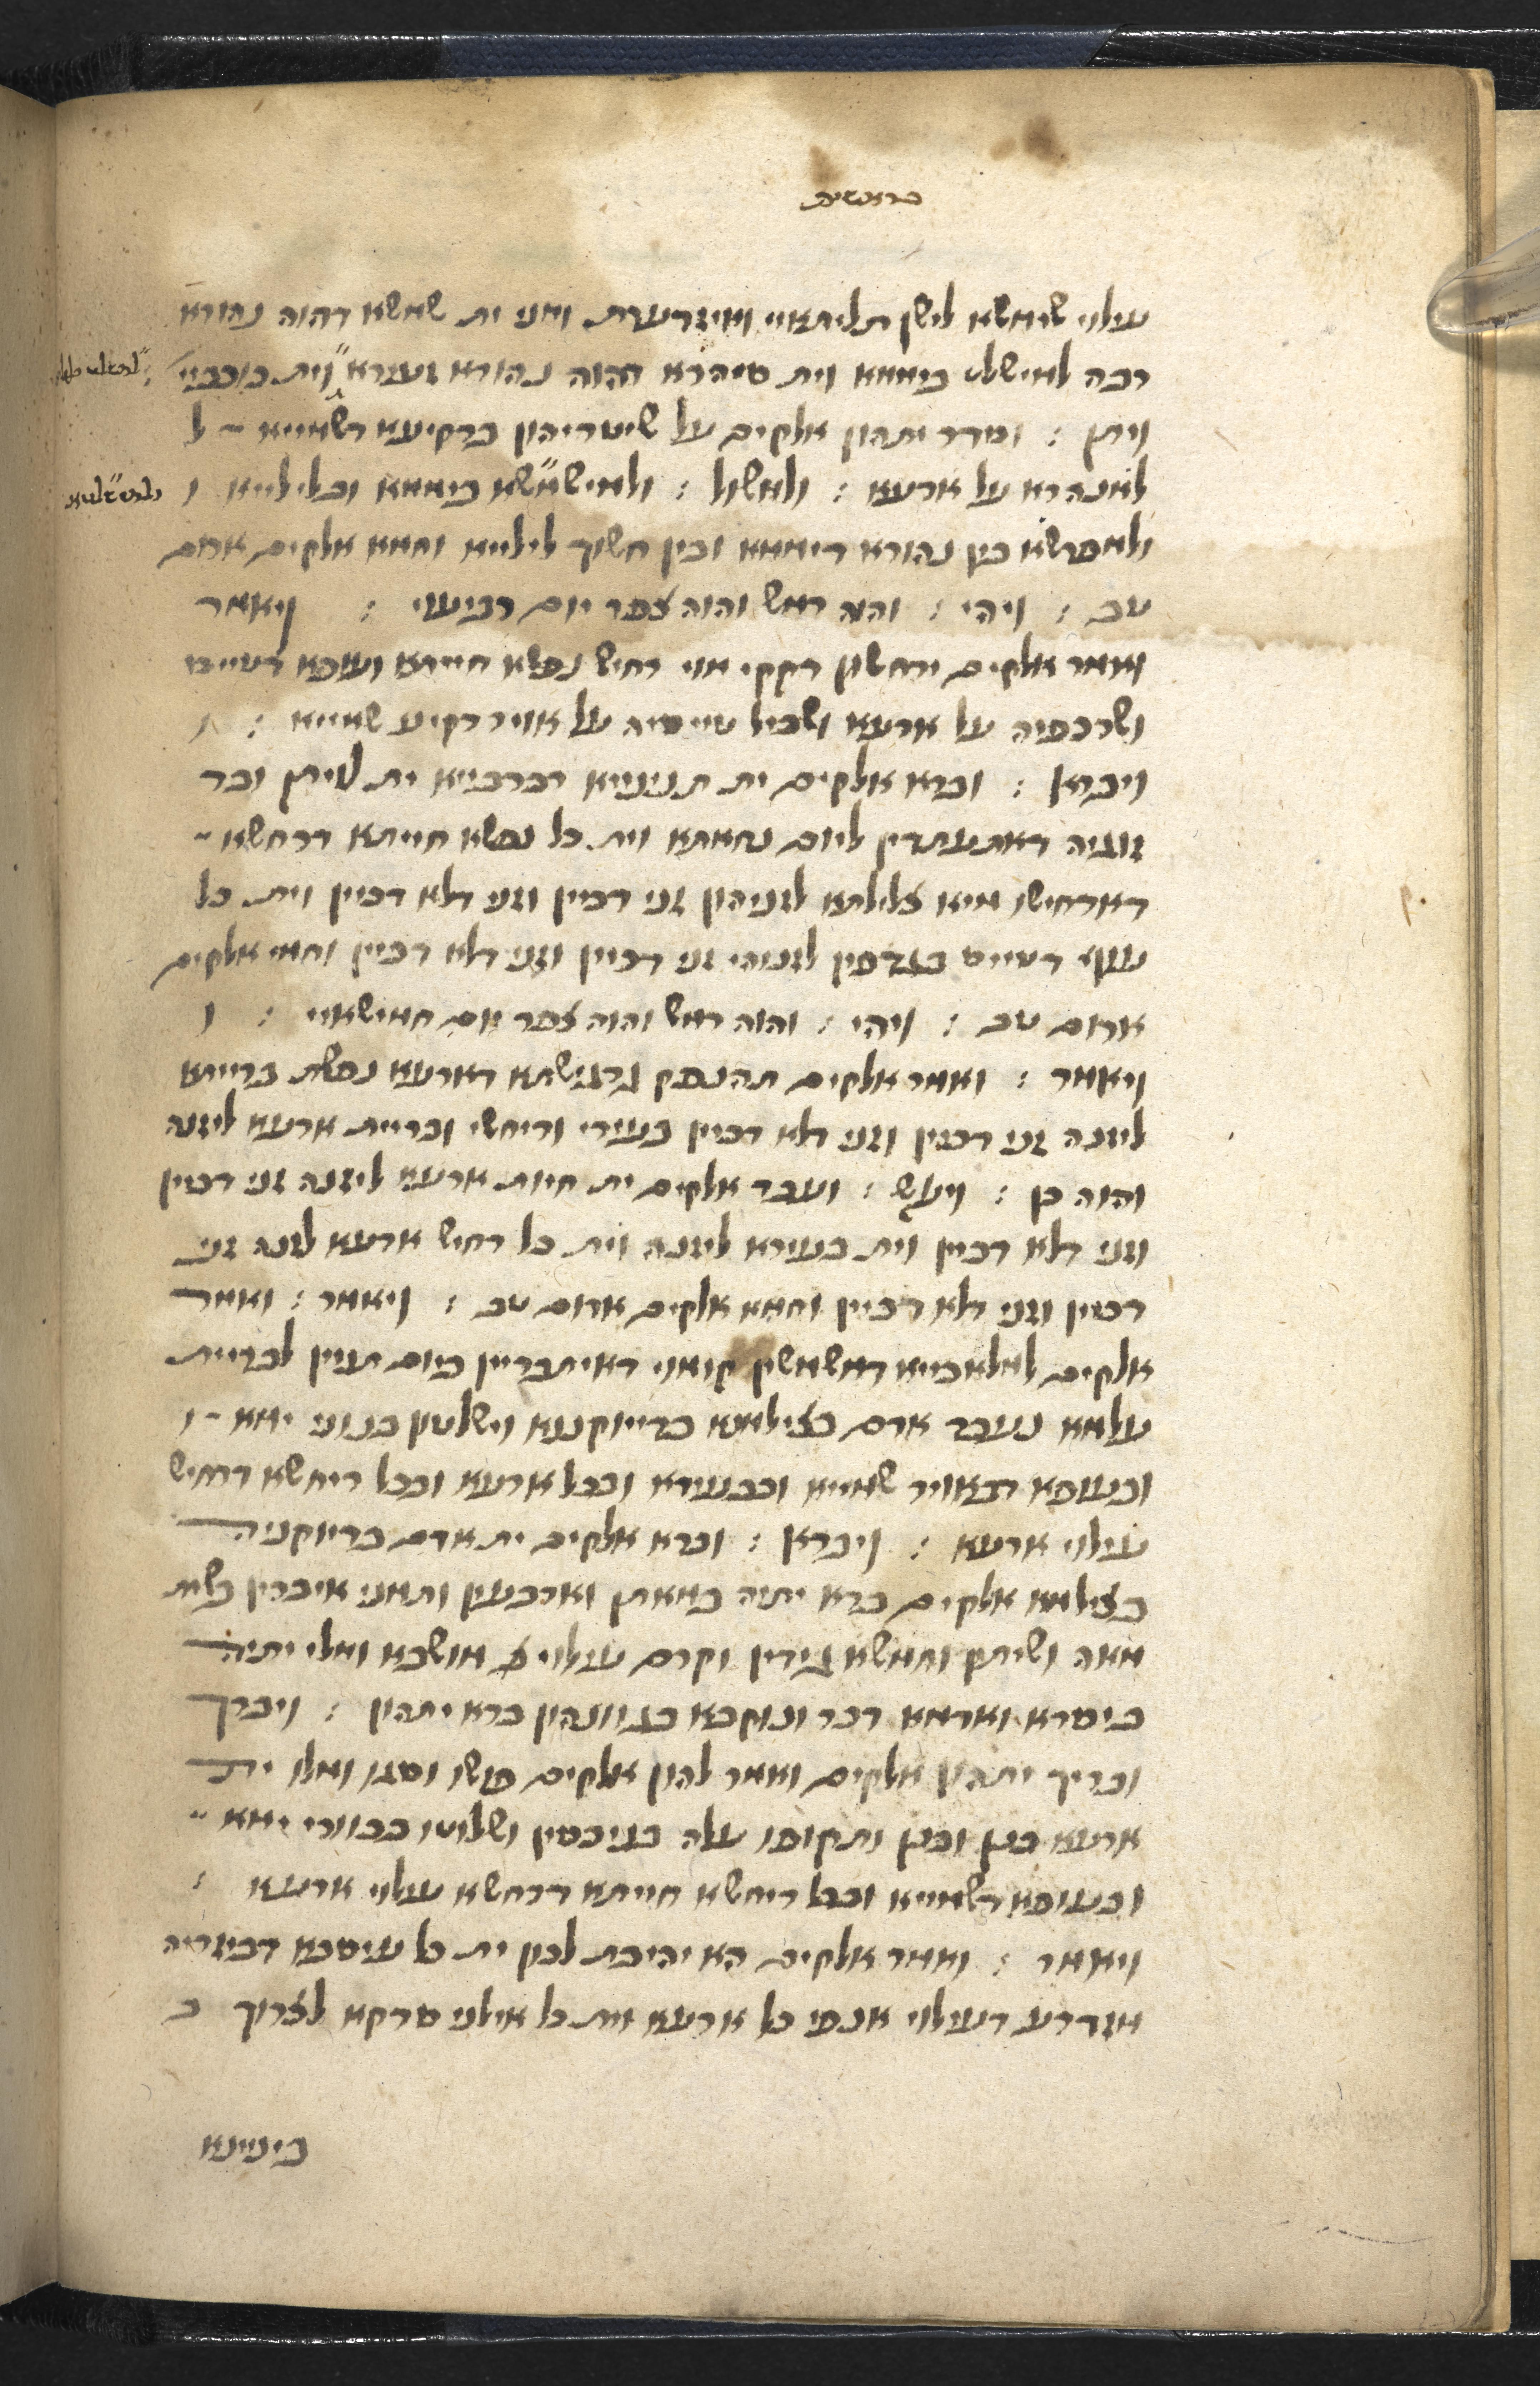 בראשית
עילוי שימשא לישן תליתאיי ואיזדערת ומני ית שמשא דהוה נהורא
רבה למישלט ביממא וית סיהרא דהוה נהורא זעירא וית כוכביי
ויתן : וסדר יתהון אלקים על שיטריהון ברקיעא דשמייא ל
למנהרא על ארעא : ולמשול : ולמישמשא ביממא ובלילייא ו
ולמפרשא בין נהורא דיממא ובין חשוך לילייא וחמא אלקים ארום
טב : ויהי : והוה רמש והוה צפר יום רביעי : ויאמר
ואמר אלקים ירחשון רקקי מוי רחיש נפשא חייתא ועופא דטייס
ושרכפיה על ארעא ושביל טייסיה על אויר רקיע שמייא :
ויברא : וברא אלקים ית תנינייא רברבייא ית לויתן ובר
זוגיה דאתעתדין ליום נחמתא וית כל נפשא חייתא דרחשא
דארחישו מיא צלילתא לזניהון זני דכיין וזני דלא דכיין וית כל
עוף דטייס בגדפין לזנוהי זני דכיין וזני דלא דכיין וחמי אלקים
ארום טב : ויהי : והוה רמש והוה צפר יום חמישאיי : ו
ויאמר : ואמר אלקים תהנפק גרגישתא דארעא נפשת ברייתא
ליזנה זני דכיין וזני דלא דכיין בעירי וריחשי ובריית ארעא ליזנה
והוה כן : ויעש : ועבד אלקים ית חיות ארעא ליזנה זני דכיין
וזני דלא דכיין וית בעירא ליזנה וית כל רחיש ארעא לזנה זני
דכיין וזני דלא דכיין וחמא אלקים ארום טב : ויאמר : ואמר
אלקים למלאכייא דמשמשין קומוי דאיתבריין ביום תניין לבריית
עלמא נעבד אדם בצילמנא כדייוקננא וישלטון בנוני ימא ו
ובעופא דבאויר שמייא ובבעירא ובכל ארעא ובכל ריחשא דרחיש
עילוי ארעא : ויברא : וברא אלקים ית אדם בדיוקניה
בצילמא אלקים ברא יתיה במאתן וארבעין ותמני איברין בשית
מאה ושיתין וחמשא גידין וקרם עילוי מושכא ומלי יתיה
ביסרא ואדמא דכר ונוקבא בגוונהון ברא יתהון : ויברך
ובריך יתהון אלקים ואמר להון אלקים פושו וסגו ומלו ית
ארעא בנין ובנן ותקופו עלה בניכסין ושלוטו בכוורי ימא
ובעופא דשמייא ובכל ריחשא חייתא דרחשא עילוי ארעא :
ויאמר : ואמר אלקים הא יהיבת לכון ית כל עיסבא דביזריה
מזדרע דעילוי אנפי כל ארעא וית כל אילני סרקא לצרוך ב
ביניינא